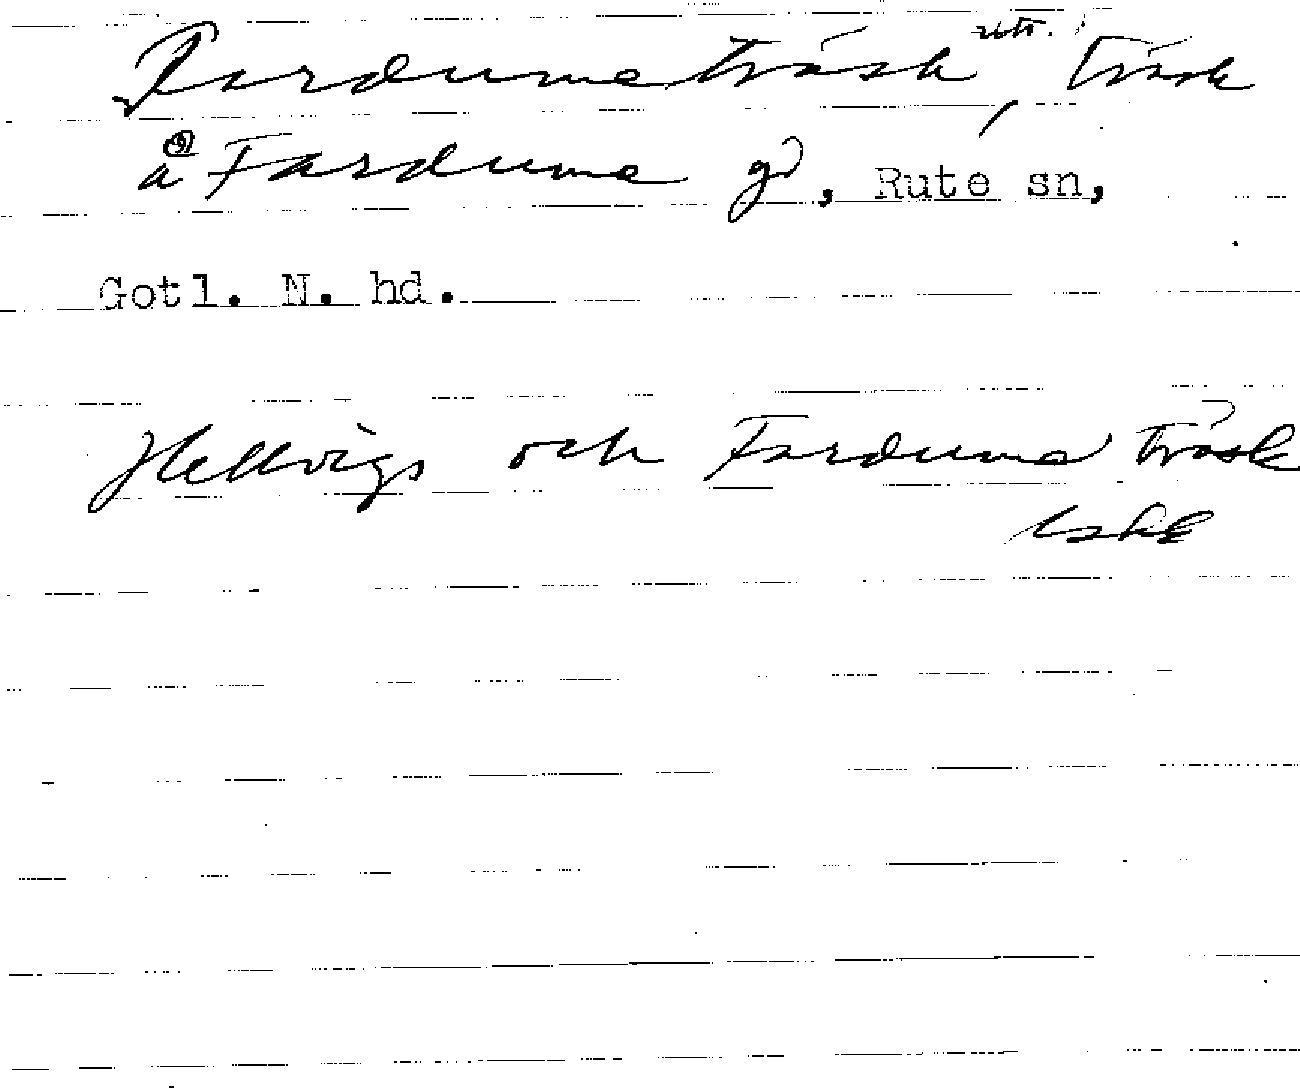 Fardume träsk, träsk
å Fardume gd, Rute sn,
Gotl. N. hd.
Hellvigs och Fardume träsk